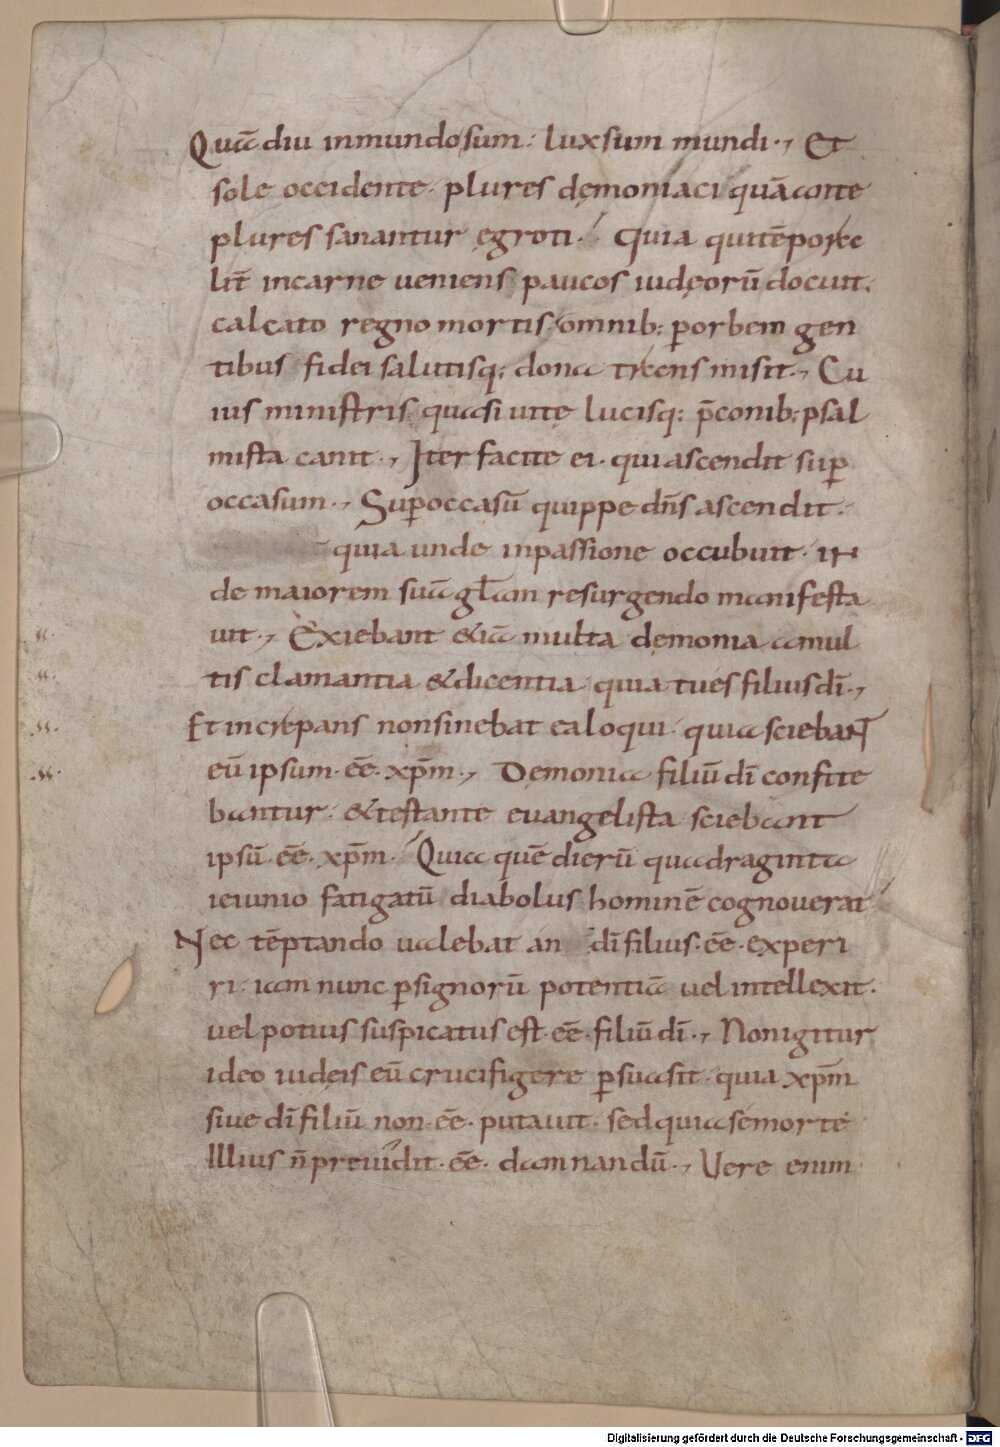 Quā diu inmundo sum· lux sum mundi·, Et
sole occidente· plures dęmoniaci quā ante
plures sanantur ęgroti·/ Quia qui tēpora
lit̄ in carne veniens paucos iudęorū docuit·
calcato regno mortis omnib; ꝑ orbem gen
tibus fidei salutisq; dona transmisit·, Cu
ius ministris quasi uitę lucisq; p̄conib; psal
mista canit·, Iter facite ei· qui ascendit sup̱
occasum·, Sup̱ occasū quippe dn̄s ascendit·
quia unde in passione occubuit· in
de maiorem suā głam resurgendo manifesta
uit·, Exiebant &iā multa dęmonia a mul
tis clamantia & dicentia quia tu es filius dī·,
Et increpans non sinebat ea loqui· quia sciebant
eū ipsum· ēē· xp̄m·, Demonia filiū dī confite
bantur· & testante euangelista sciebant
ipsū· ēē· xp̄m·/ Quia quē dierū quadraginta
ieiunio fatigatū diabolus hominē cognouerat
Nec tēptando ualebat an dī filius· ēē· experi
ri· iam nunc ꝑ signorū potentiā uel intellexit·
uel potius suspicatus est· ēē· filiū dī·, Non igitur
ideo iudęis eū crucifigere ꝑsuasit· quia xp̄m
siue dī filiū non· ēē· putauit· sed quia se morte
illius n̄ preuidit· ēē· damnandū·, Vere enim
Digitalisierung gefördert durch die Deutsche Forschungsgemeinschaft - DFG